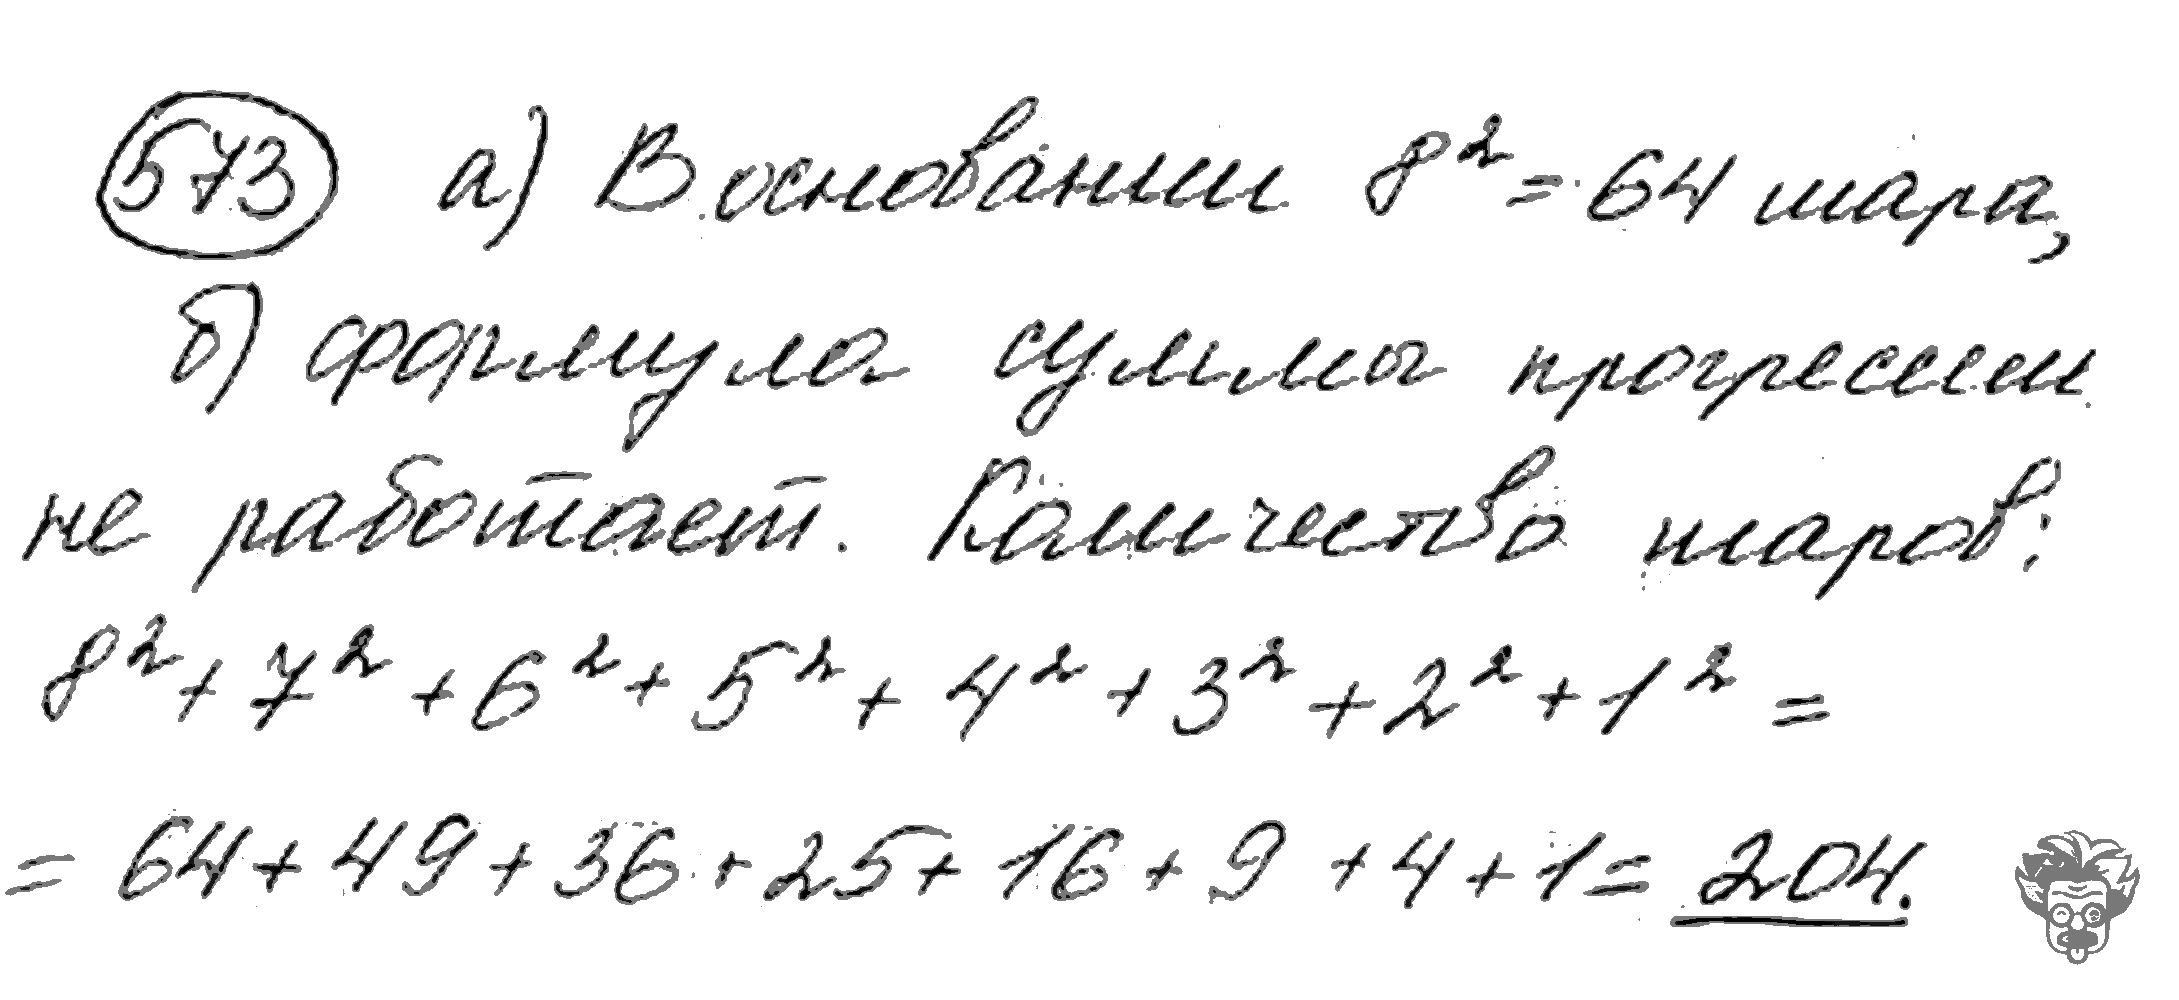 573 а) В основании 8² = 64 шара,
б) формула суммы прогрессии
не работает. Количество шаров:
8² + 7² + 6² + 5² + 4² + 3² + 2² + 1² =
= 64 + 49 + 36 + 25 + 16 + 9 + 4 + 1 = 204.